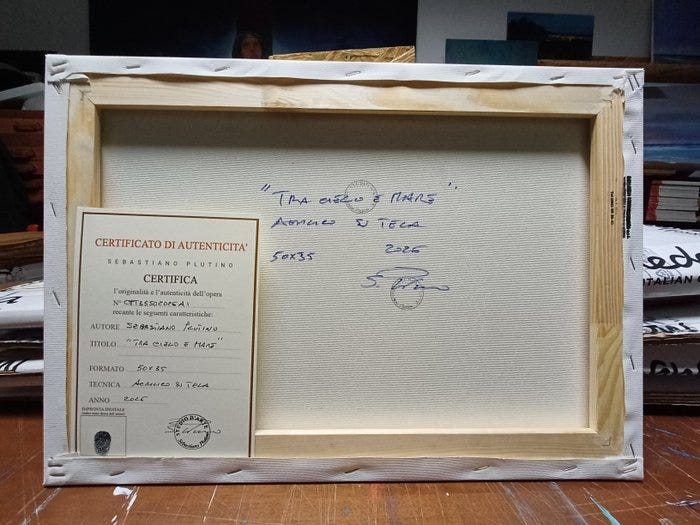 "TRA CIELO E MARE"
ACRILICO SU TELA
50X35 2026
CERTIFICATO DI AUTENTICITA'
SEBASTIANO PLUTINO
CERTIFICA
l'originalità e l'autenticità dell'opera
N°
recante le seguenti caratteristiche:
AUTORE SEBASTIANO PLUTINO
TITOLO "TRA CIELO E MARE"
FORMATO 50X35
TECNICA ACRILICO SU TELA
ANNO 2026
IMPRONTA DIGITALE
STUDIO D'ARTE
Sebastiano Plutino
ITALIAN